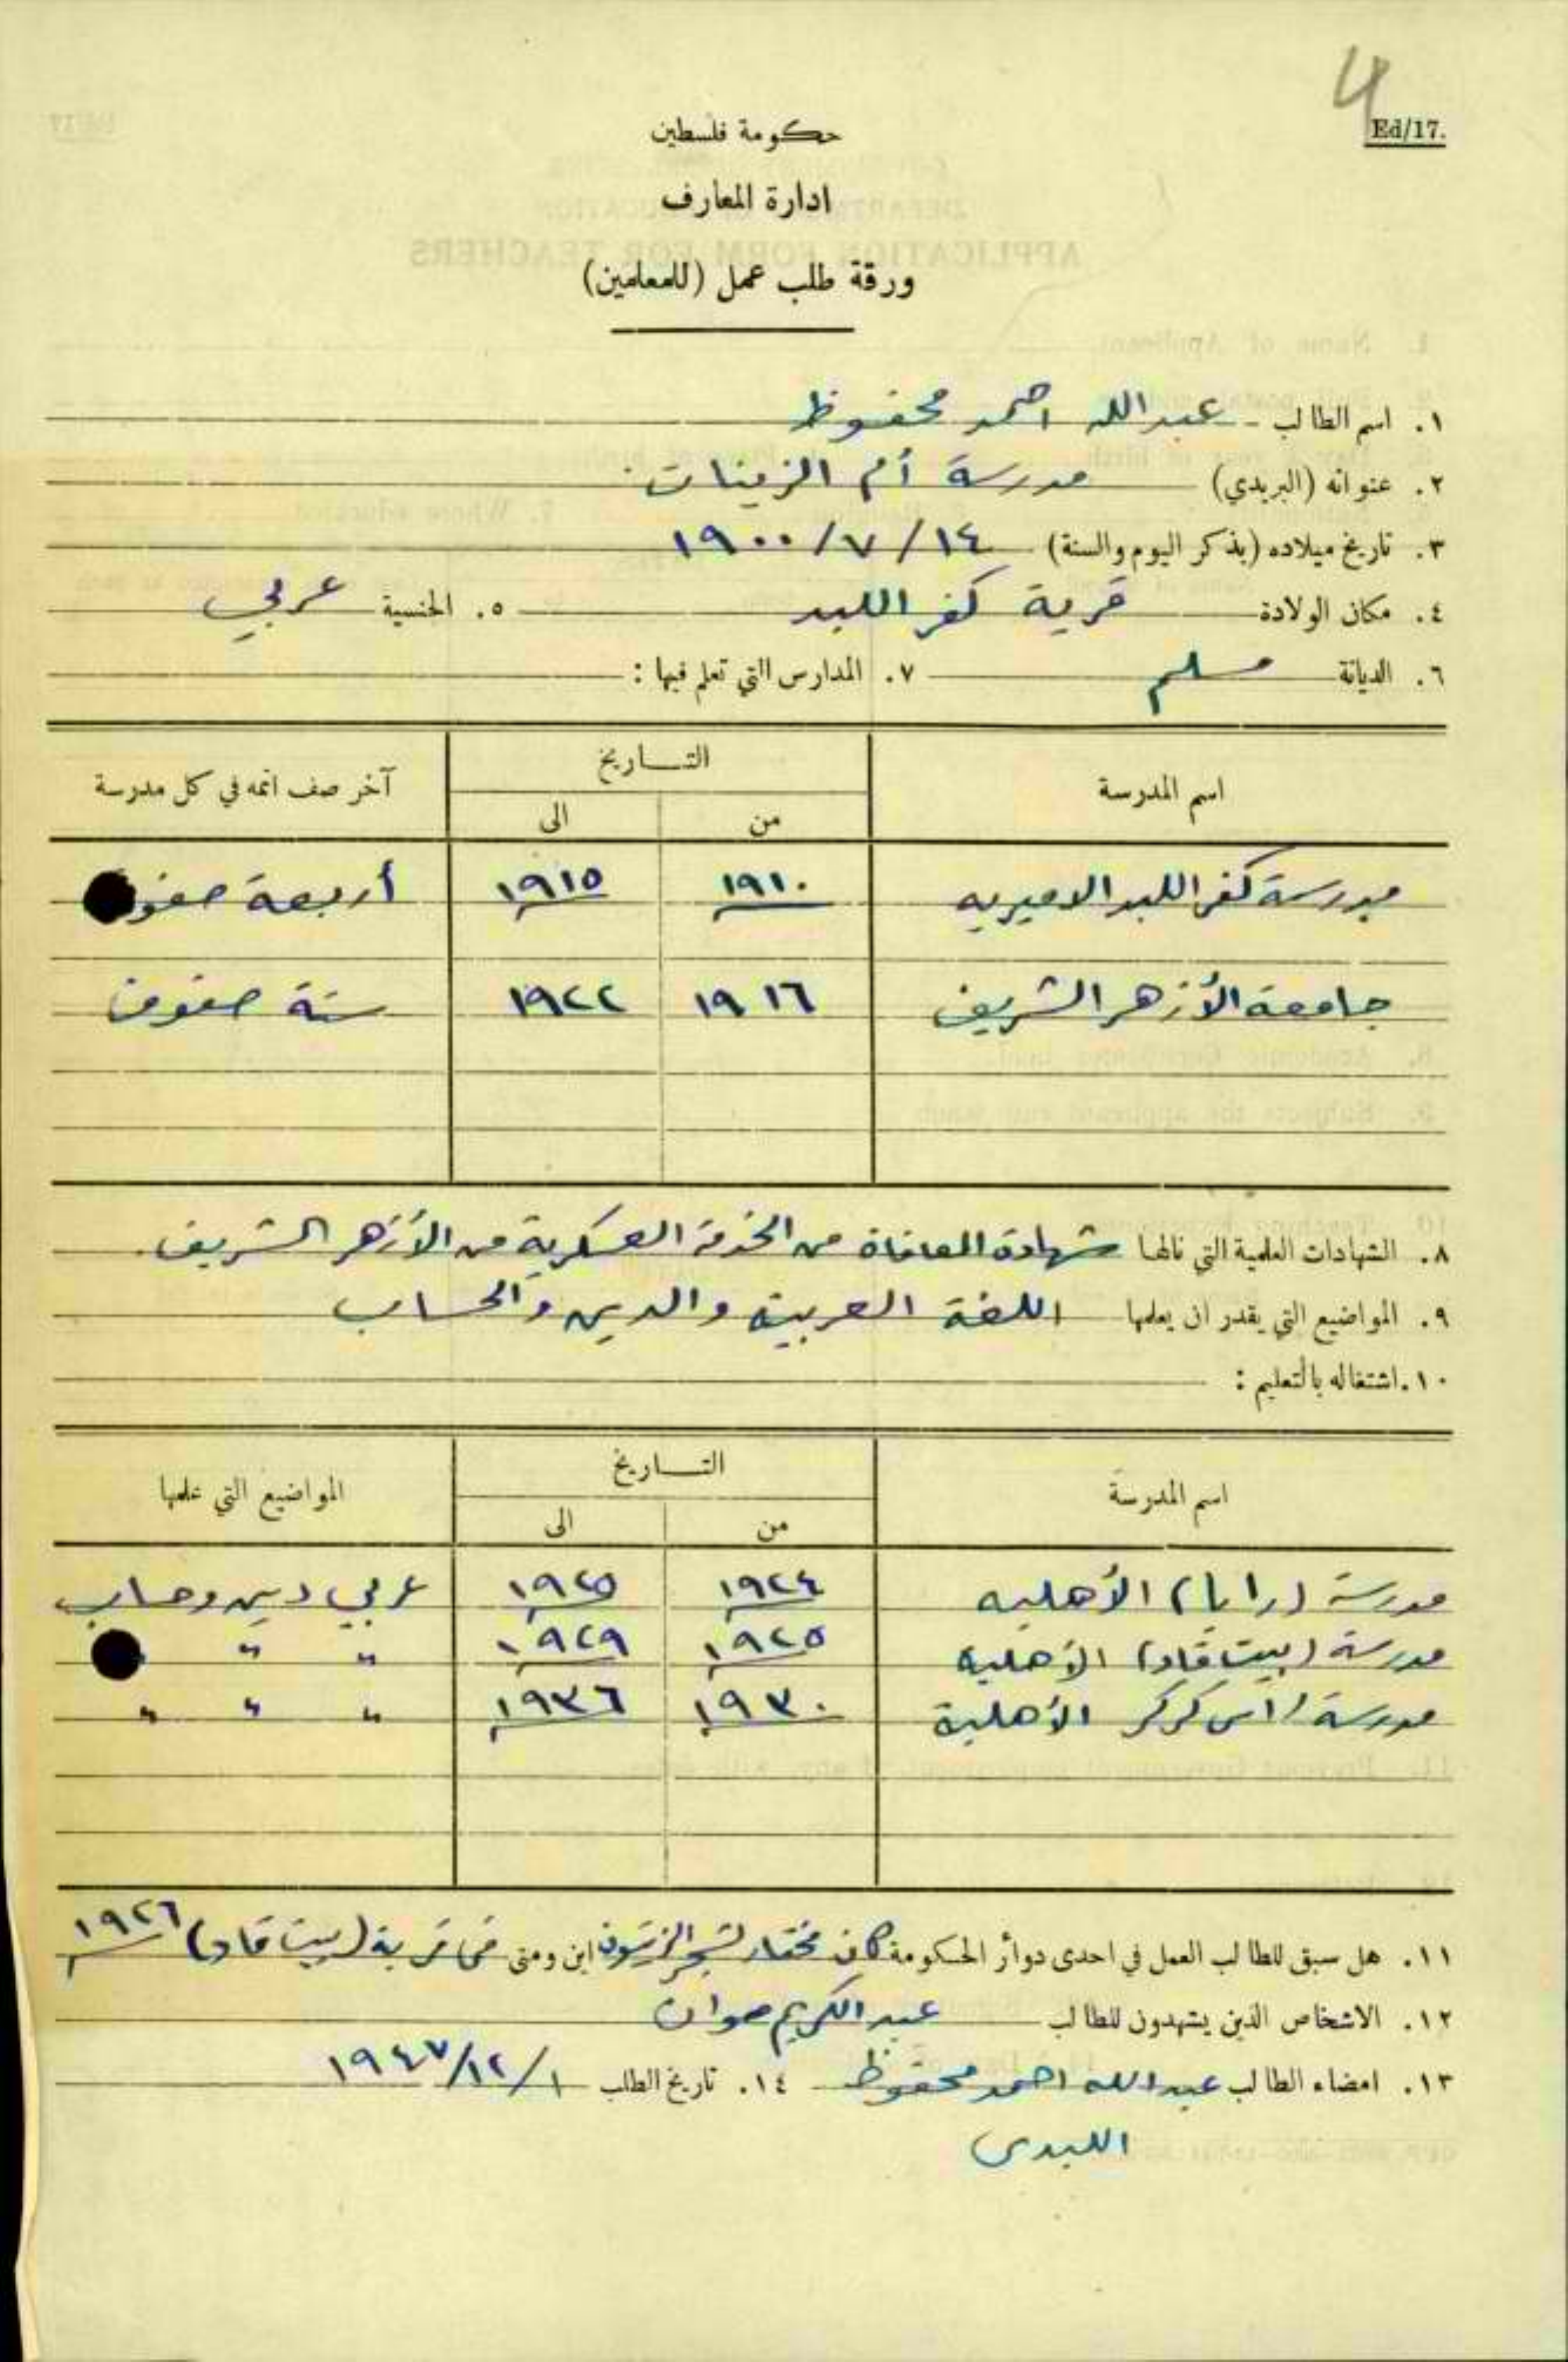 4
Ed/17.
حكومة فلسطين
ادارة المعارف
ورقة طلب عمل (للمعلمين)
١. اسم الطالب - عبدالله احمد محفوظ
٢. عنوانه (البريدي) مدرسة أم الزينات
٣. تاريخ ميلاده (يذكر اليوم والسنة) ١٤/٧/١٩٠٠
٤. مكان الولادة قرية كفر اللبد ٥. الجنسية عربي
٦. الديانة مسلم ٧. المدارس التي تعلم فيها :
اسم المدرسة التـــاريخ آخر صف اتمه في كل مدرسة
من الى
مدرسة كفر اللبد الاميريه ١٩١٠ ١٩١٥ أربعة
جامعة الأزهر الشريف ١٩١٦ ١٩٢٢ ستة صفوف
٨. الشهادات العلمية التي نالها شهادة المعافاة من الخدمة العسكرية من الأزهر الشريف.
٩. المواضيع التي يقدر ان يعلمها اللغة العربية والدين والحساب
١٠. اشتغاله بالتعليم :
اسم المدرسة التـــاريخ المواضيع التي علمها
من الى
مدرسة (رابا) الأهليه ١٩٢٤ ١٩٢٥ عربي دين وحساب
مدرسة (بيت قاد) الأهلية ١٩٢٥ ١٩٢٩ " "
مدرسة راس كركر الأهلية ١٩٣٠ ١٩٣٦ " " "
١١. هل سبق للطالب العمل في احدى دوائر الحكومة كان مختار لشجر الزيتون اين ومتى في قرية (بيت قاد) ١٩٢٦
١٢. الاشخاص الذين يشهدون للطالب عبد الكريم
١٣. امضاء الطالب عبدالله احمد محفوظ ١٤. تاريخ الطلب ١/١٢/١٩٤٧
اللبدي